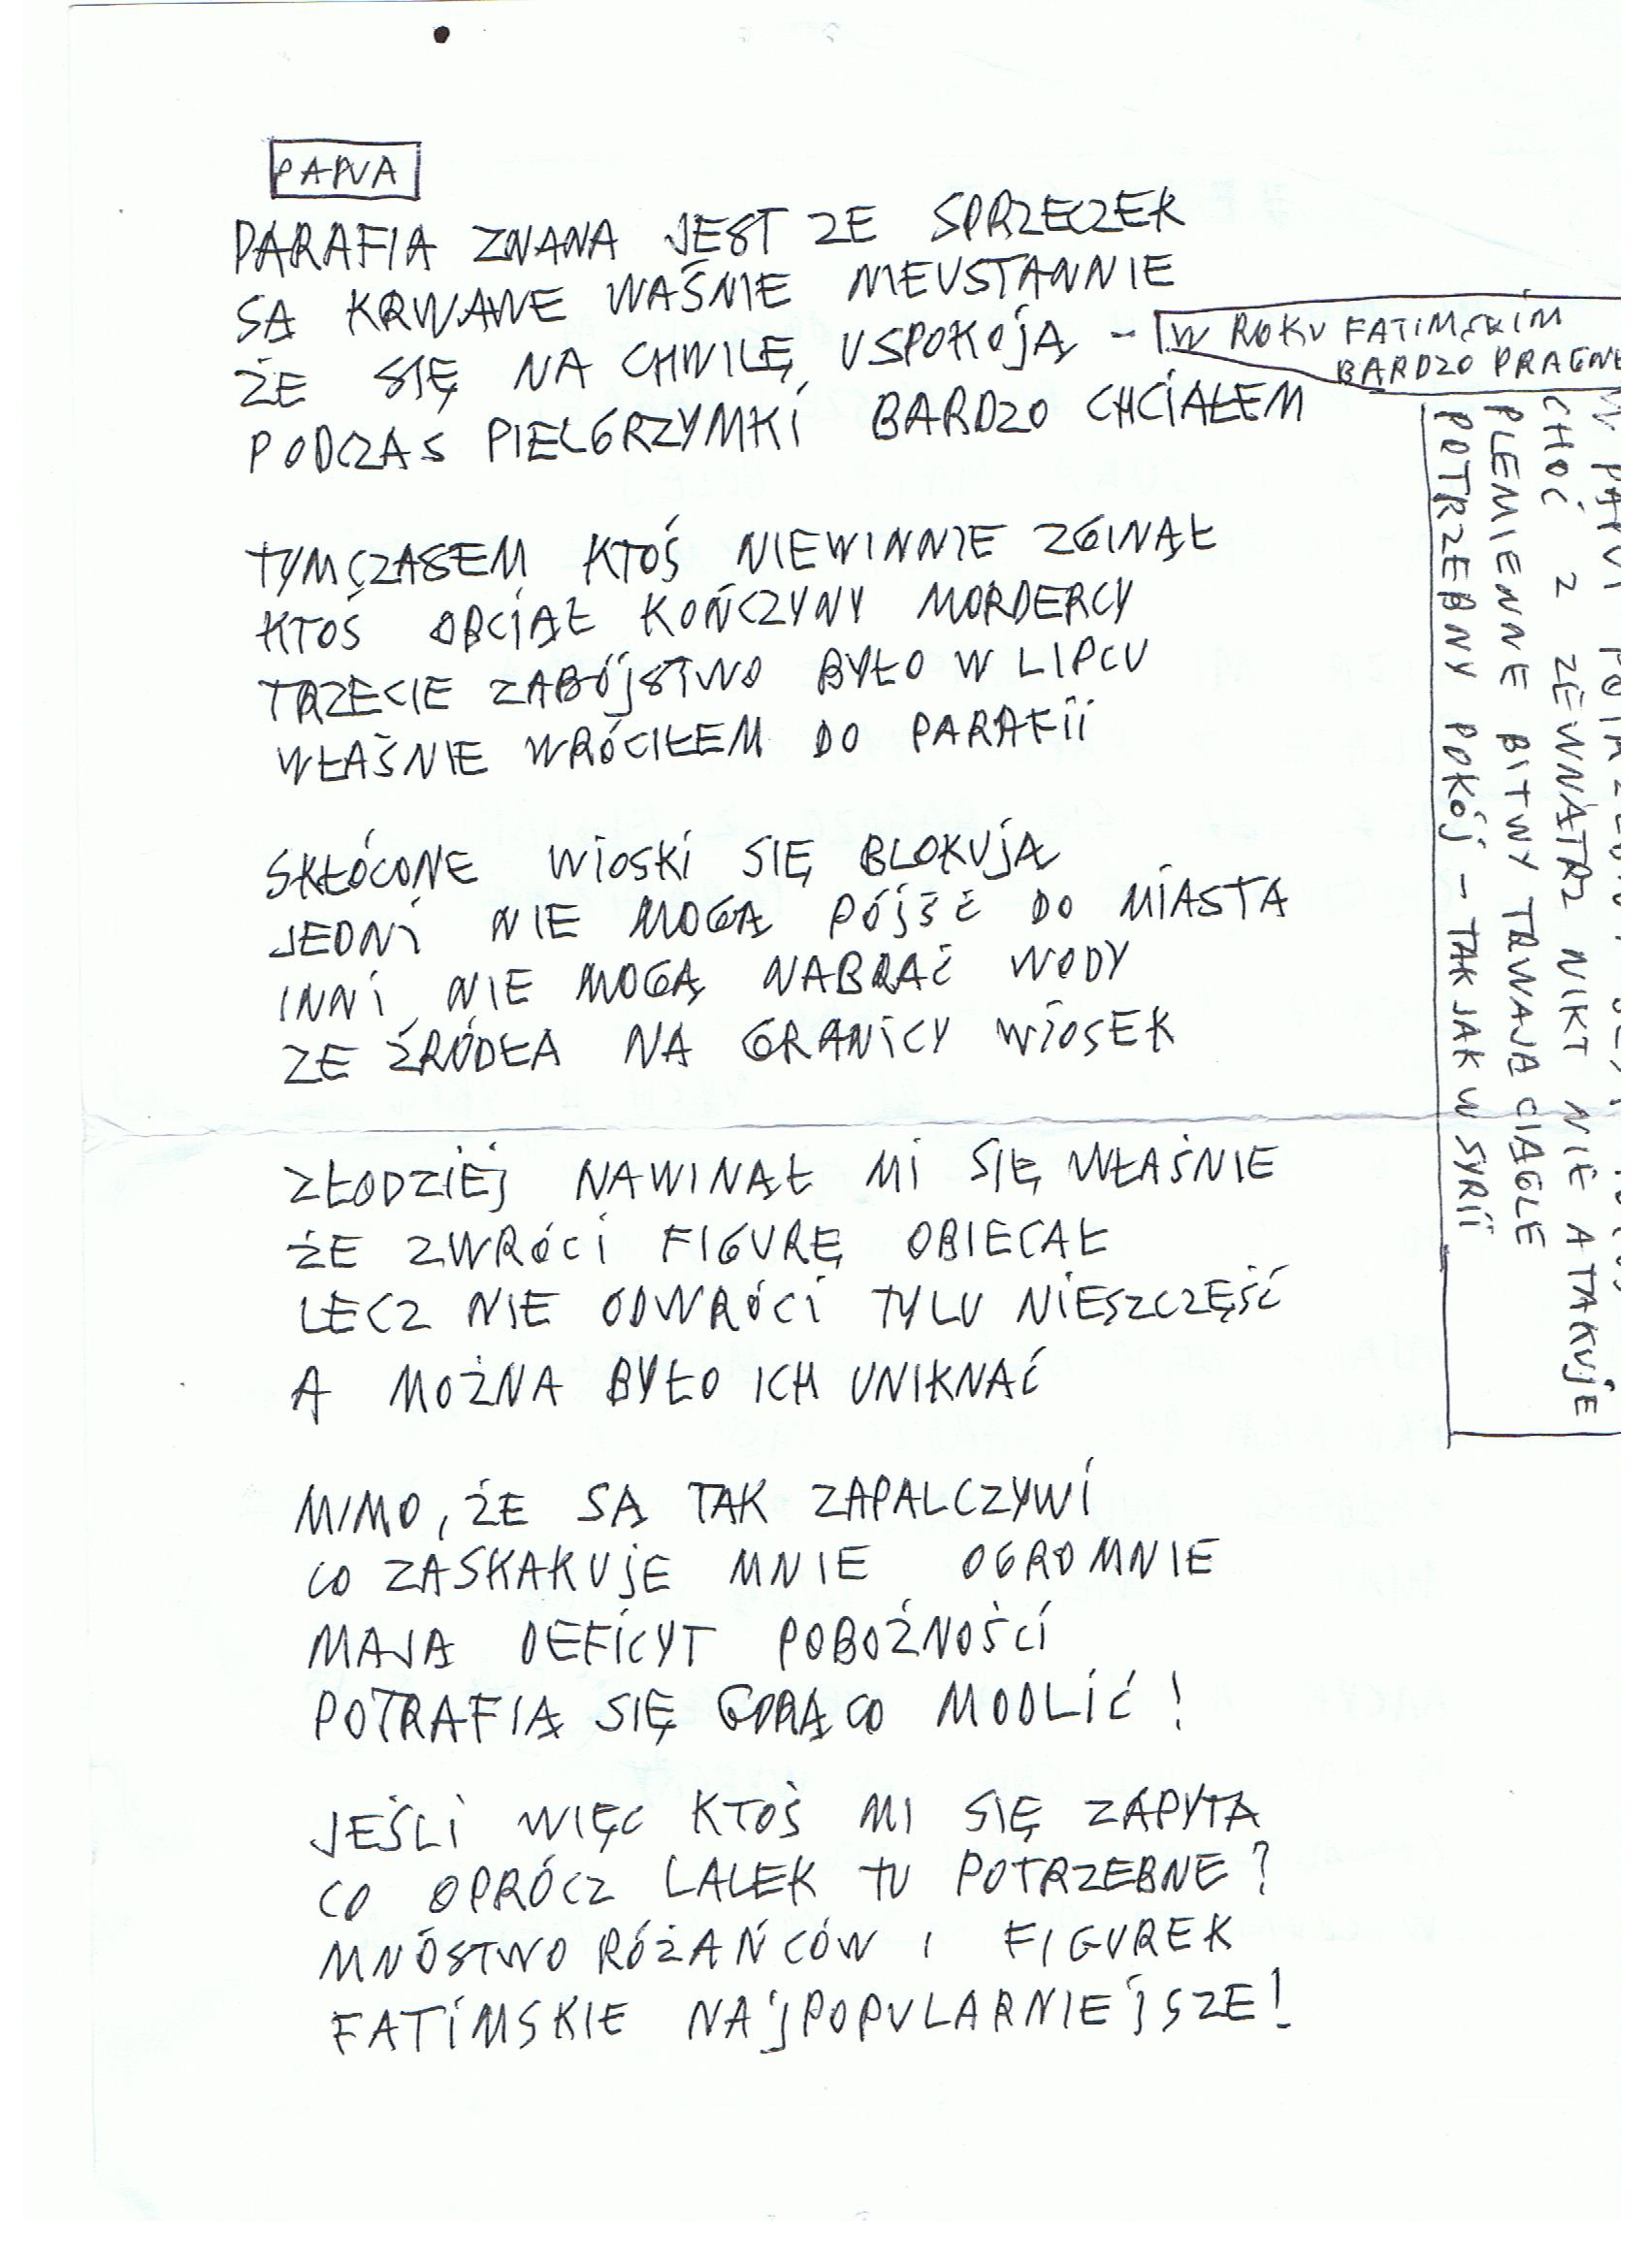 PAPUA
PARAFIA ZNANA JEST ZE SPRZECZEK
SĄ KRWAWE WAŚNIE NIEUSTANNIE
ŻE SIĘ NA CHWILĘ USPOKOJĄ -
PODCZAS PIELGRZYMKI BARDZO CHCIAŁEM
W ROKU FATIMSKIM
BARDZO PRAGNĘ
CHOĆ Z ZEWNĄTRZ NIKT NIE ATAKUJE
PLEMIENNE BITWY TRWAJĄ CIĄGLE
POTRZEBNY POKÓJ - TAK JAK W SYRII
TYMCZASEM KTOŚ NIEWINNIE ZGINĄŁ
KTOŚ OBCIĄŁ KOŃCZYNY MORDERCY
TRZECIE ZABÓJSTWO BYŁO W LIPCU
WŁAŚNIE WRÓCIŁEM DO PARAFII
SKŁÓCONE WIOSKI SIĘ BLOKUJĄ
JEDNI NIE MOGĄ PÓJŚĆ DO MIASTA
INNI NIE MOGĄ NABRAĆ WODY
ZE ŹRÓDŁA NA GRANICY WIOSEK
ZŁODZIEJ NAWINĄŁ MI SIĘ WŁAŚNIE
ŻE ZWRÓCI FIGURĘ OBIECAŁ
LECZ NIE ODWRÓCI TYLU NIESZCZĘŚĆ
A MOŻNA BYŁO ICH UNIKNĄĆ
MIMO, ŻE SĄ TAK ZAPALCZYWI
CO ZASKAKUJE MNIE OGROMNIE
MAJĄ DEFICYT POBOŻNOŚCI
POTRAFIĄ SIĘ GORĄCO MODLIĆ!
JEŚLI WIĘC KTOŚ MI SIĘ ZAPYTA
CO OPRÓCZ LALEK TU POTRZEBNE?
MNÓSTWO RÓŻAŃCÓW I FIGUREK
FATIMSKIE NAJPOPULARNIEJSZE!